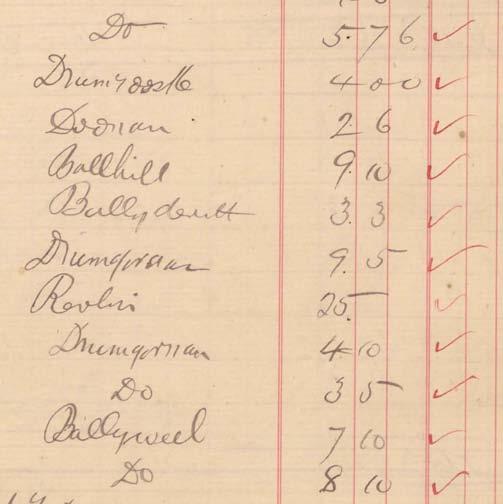 Do 5. 7 6
Drumroosk 4 0 0
Doonan 2 6
Ballhill 9. 10
Ballydevitt 3. 3
Drumgorman 9. 5
Revlin 25.
Drumgorman 4 10
Do 3 5
Ballyweel 7 10
Do 8 10